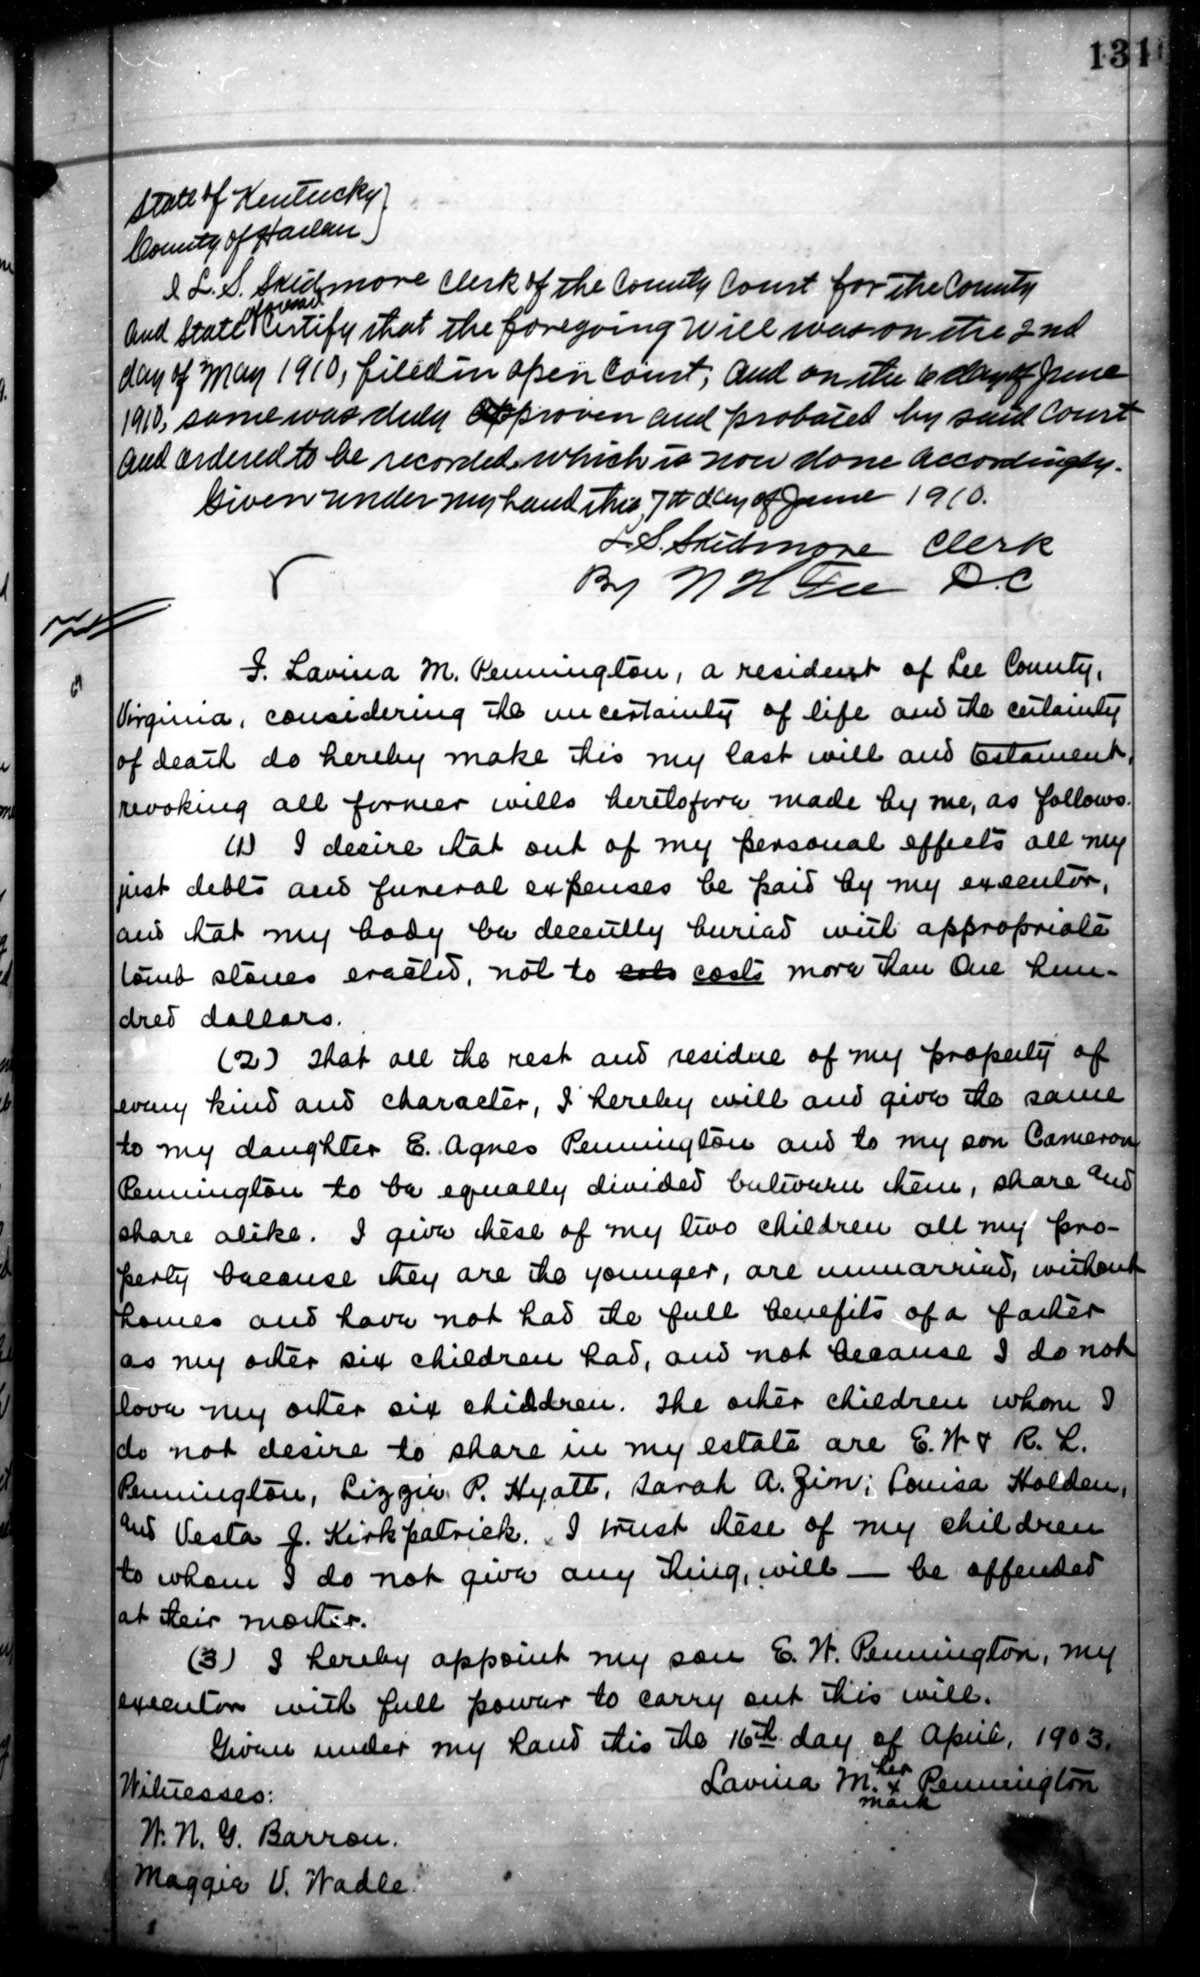 131
State of Kentucky }
County of Harlan }
I L. S. Skidmore Clerk of the County Court for the County
and State aforesaid Certify that the foregoing Will was on the 2nd
day of May 1910, filed in open Court, and on the 6 day of June
1910, same was duly approven and probated by said Court
and ordered to be recorded which is now done accordingly.
Given under my hand this, 7th day of June 1910.
L. S. Skidmore Clerk
By N H D.C
I. Lavina M. Pennington, a resident of Lee County,
Virginia, considering the uncertainty of life and the certainty
of death do hereby make this my last will and testament,
revoking all former wills heretofore made by me, as follows.
(1) I desire that out of my personal effects all my
just debts and funeral expenses be paid by my executor,
and that my body be decently buried with appropriate
tomb stones erected, not to costs more than One hun-
dred dollars.
(2) That all the rest and residue of my property of
every kind and character, I hereby will and give the same
to my daughter E. Agnes Pennington and to my son Cameron
Pennington to be equally divided between them, share and
share alike. I give these of my two children all my pro-
perty because they are the younger, are unmarried, without
homes and have not had the full benefits of a father
as my other six children had, and not because I do not
love my other six children. The other children whom I
do not desire to share in my estate are E. W & R. L.
Pennington, Lizzie P. Hyatt, Sarah A. Zion; Louisa Holden,
and Vesta J. Kirkpatrick. I trust these of my children
to whom I do not give any thing, will — be offended
at their mother.
(3) I hereby appoint my son E. W. Pennington, my
executor with full power to carry out this will.
Given under my hand this the 16th day of April, 1903.
Lavina M. her x mark Pennington
Witnesses:
W. N. G. Barron.
Maggie V. Wadle.